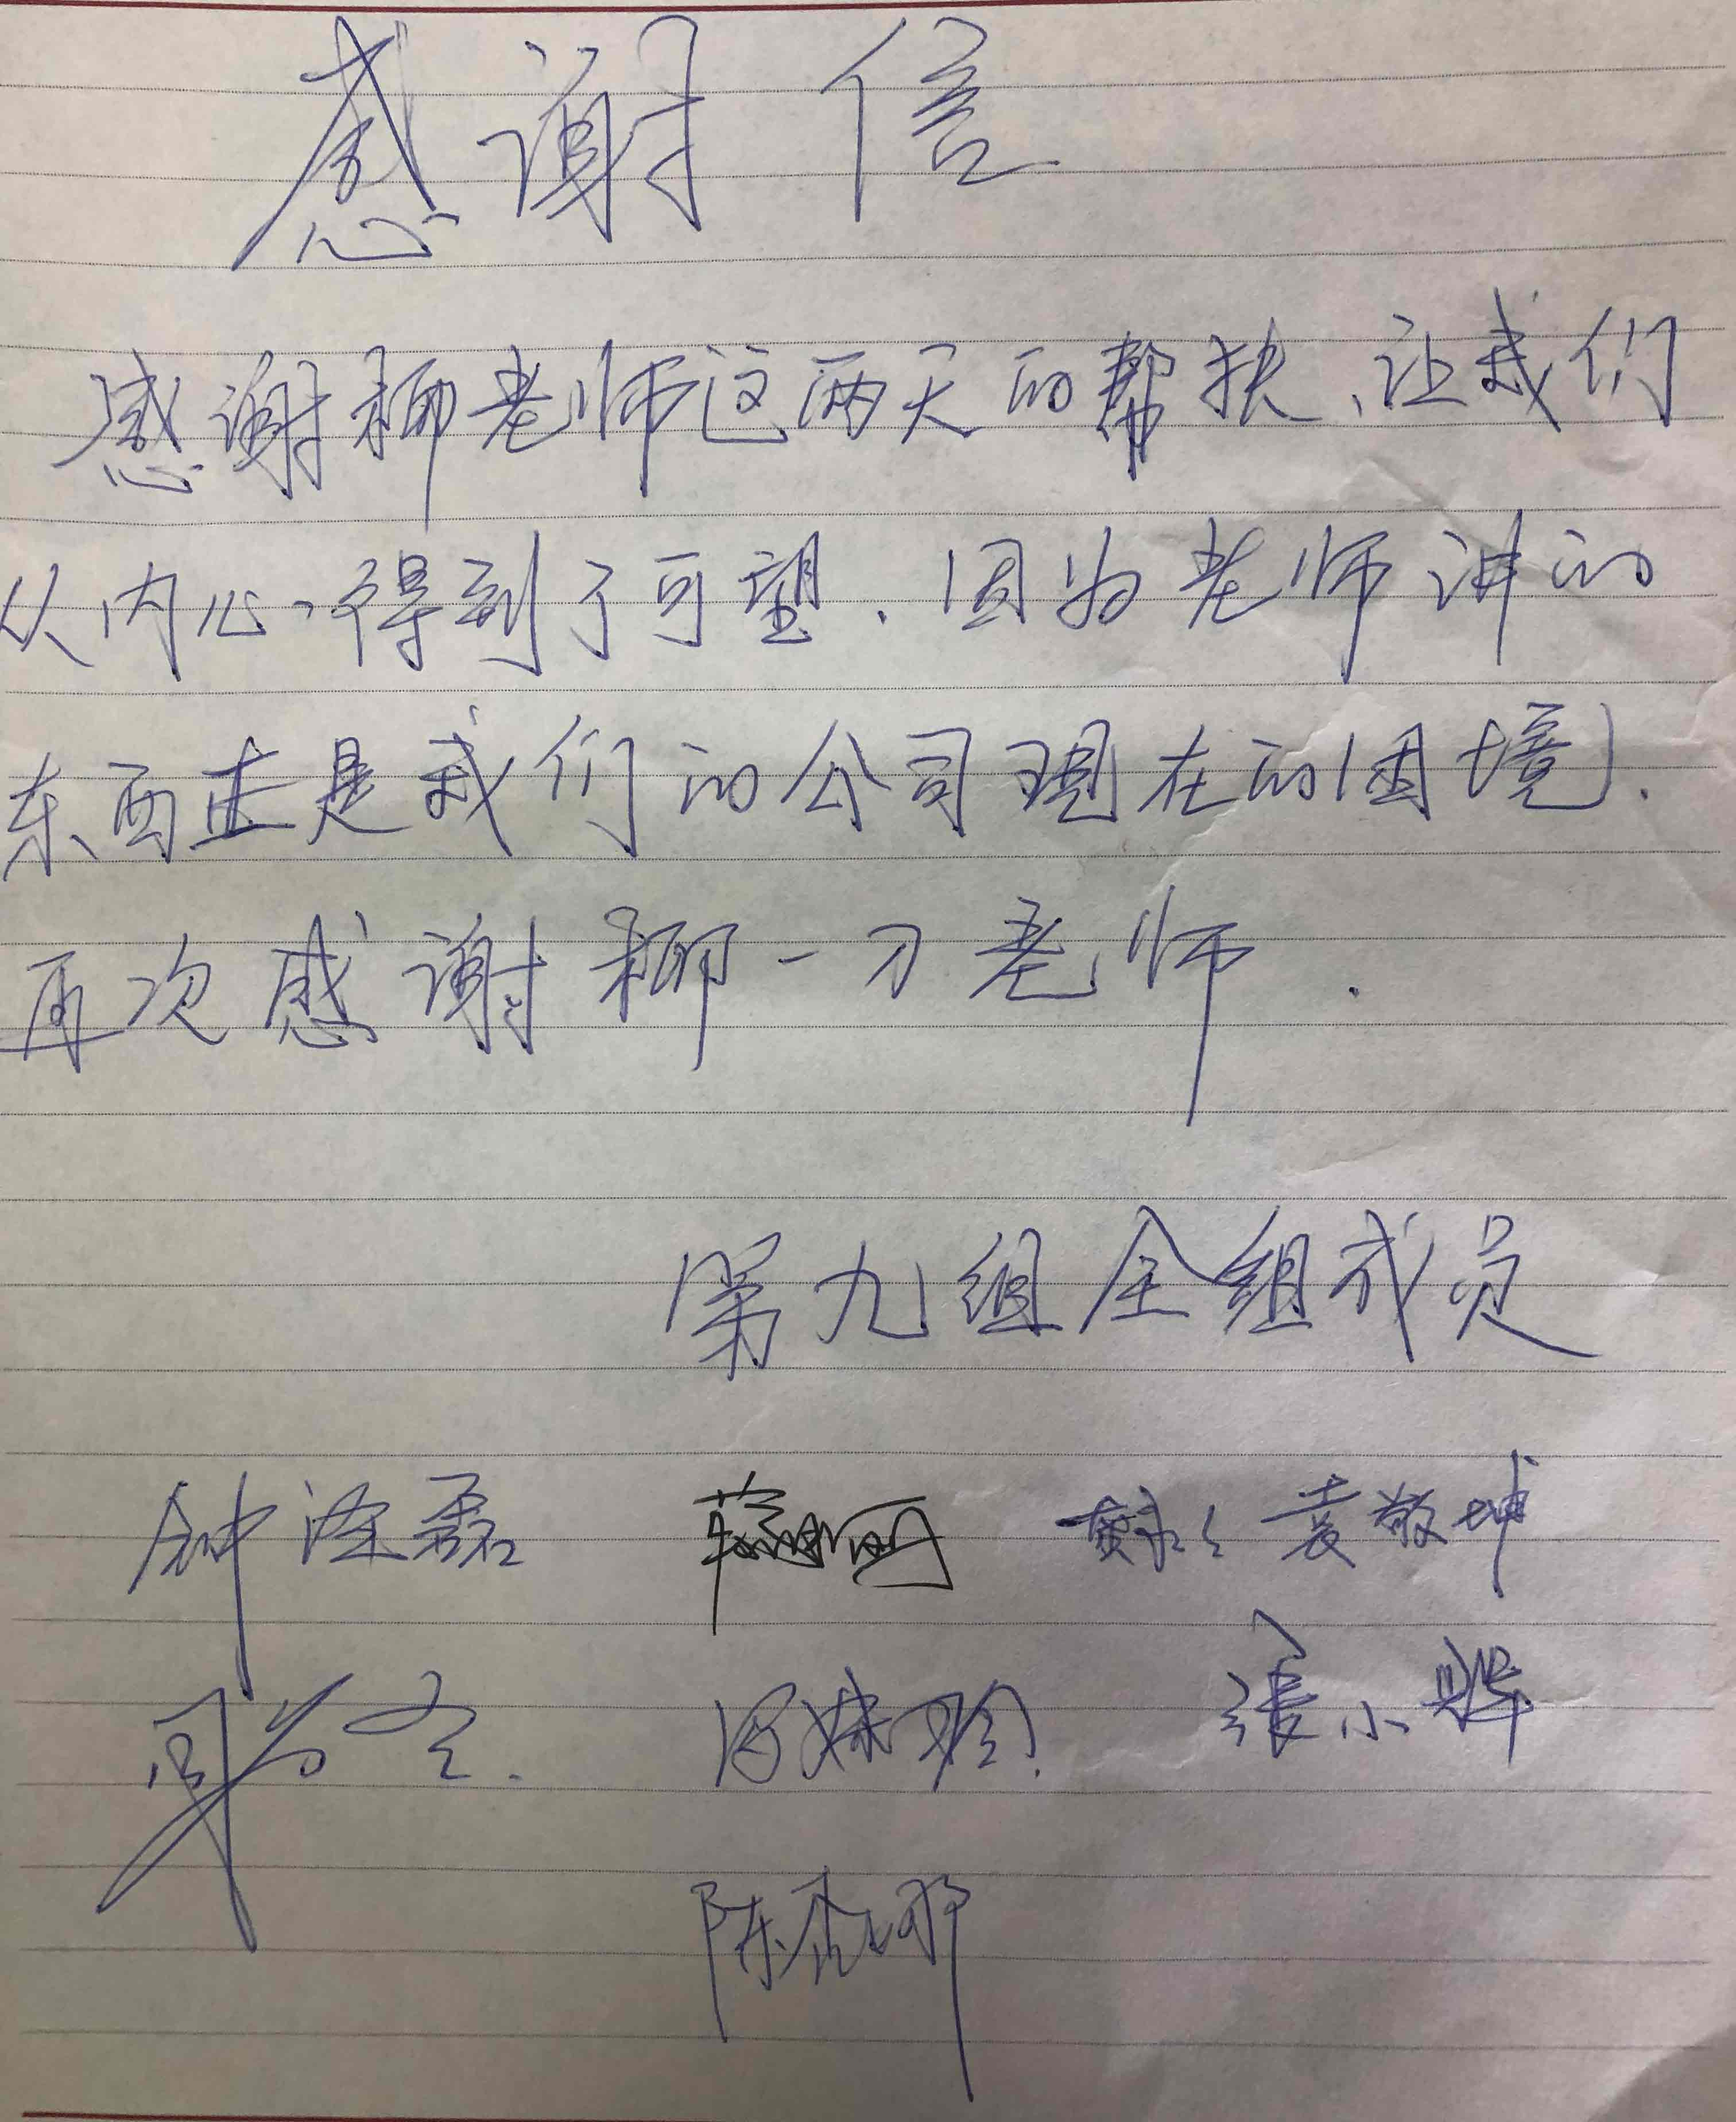 感谢信
感谢柳老师这两天的帮扶、让我们
从内心得到了可望.因为老师讲的
东西正是我们的公司现在的困境.
再次感谢柳一刀老师.
第九组全组成员
钟泽磊 袁敬坤
张小
陈